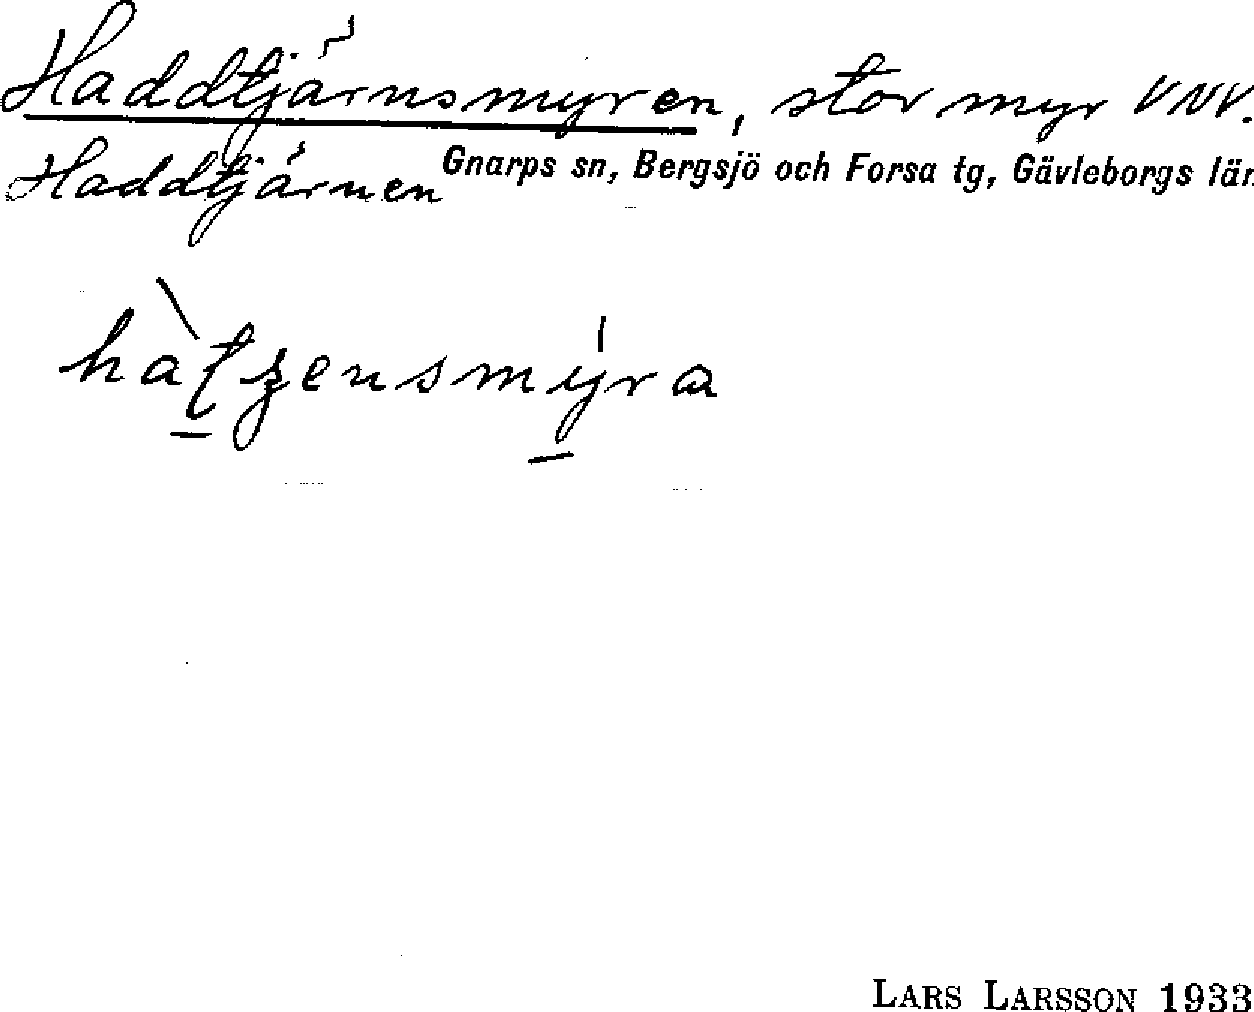 Haddtjärnsmyren, stor myr VNV.
Haddtjärnen Gnarps sn, Bergsjö och Forsa tg, Gävleborgs län
LARS LARSSON 1933